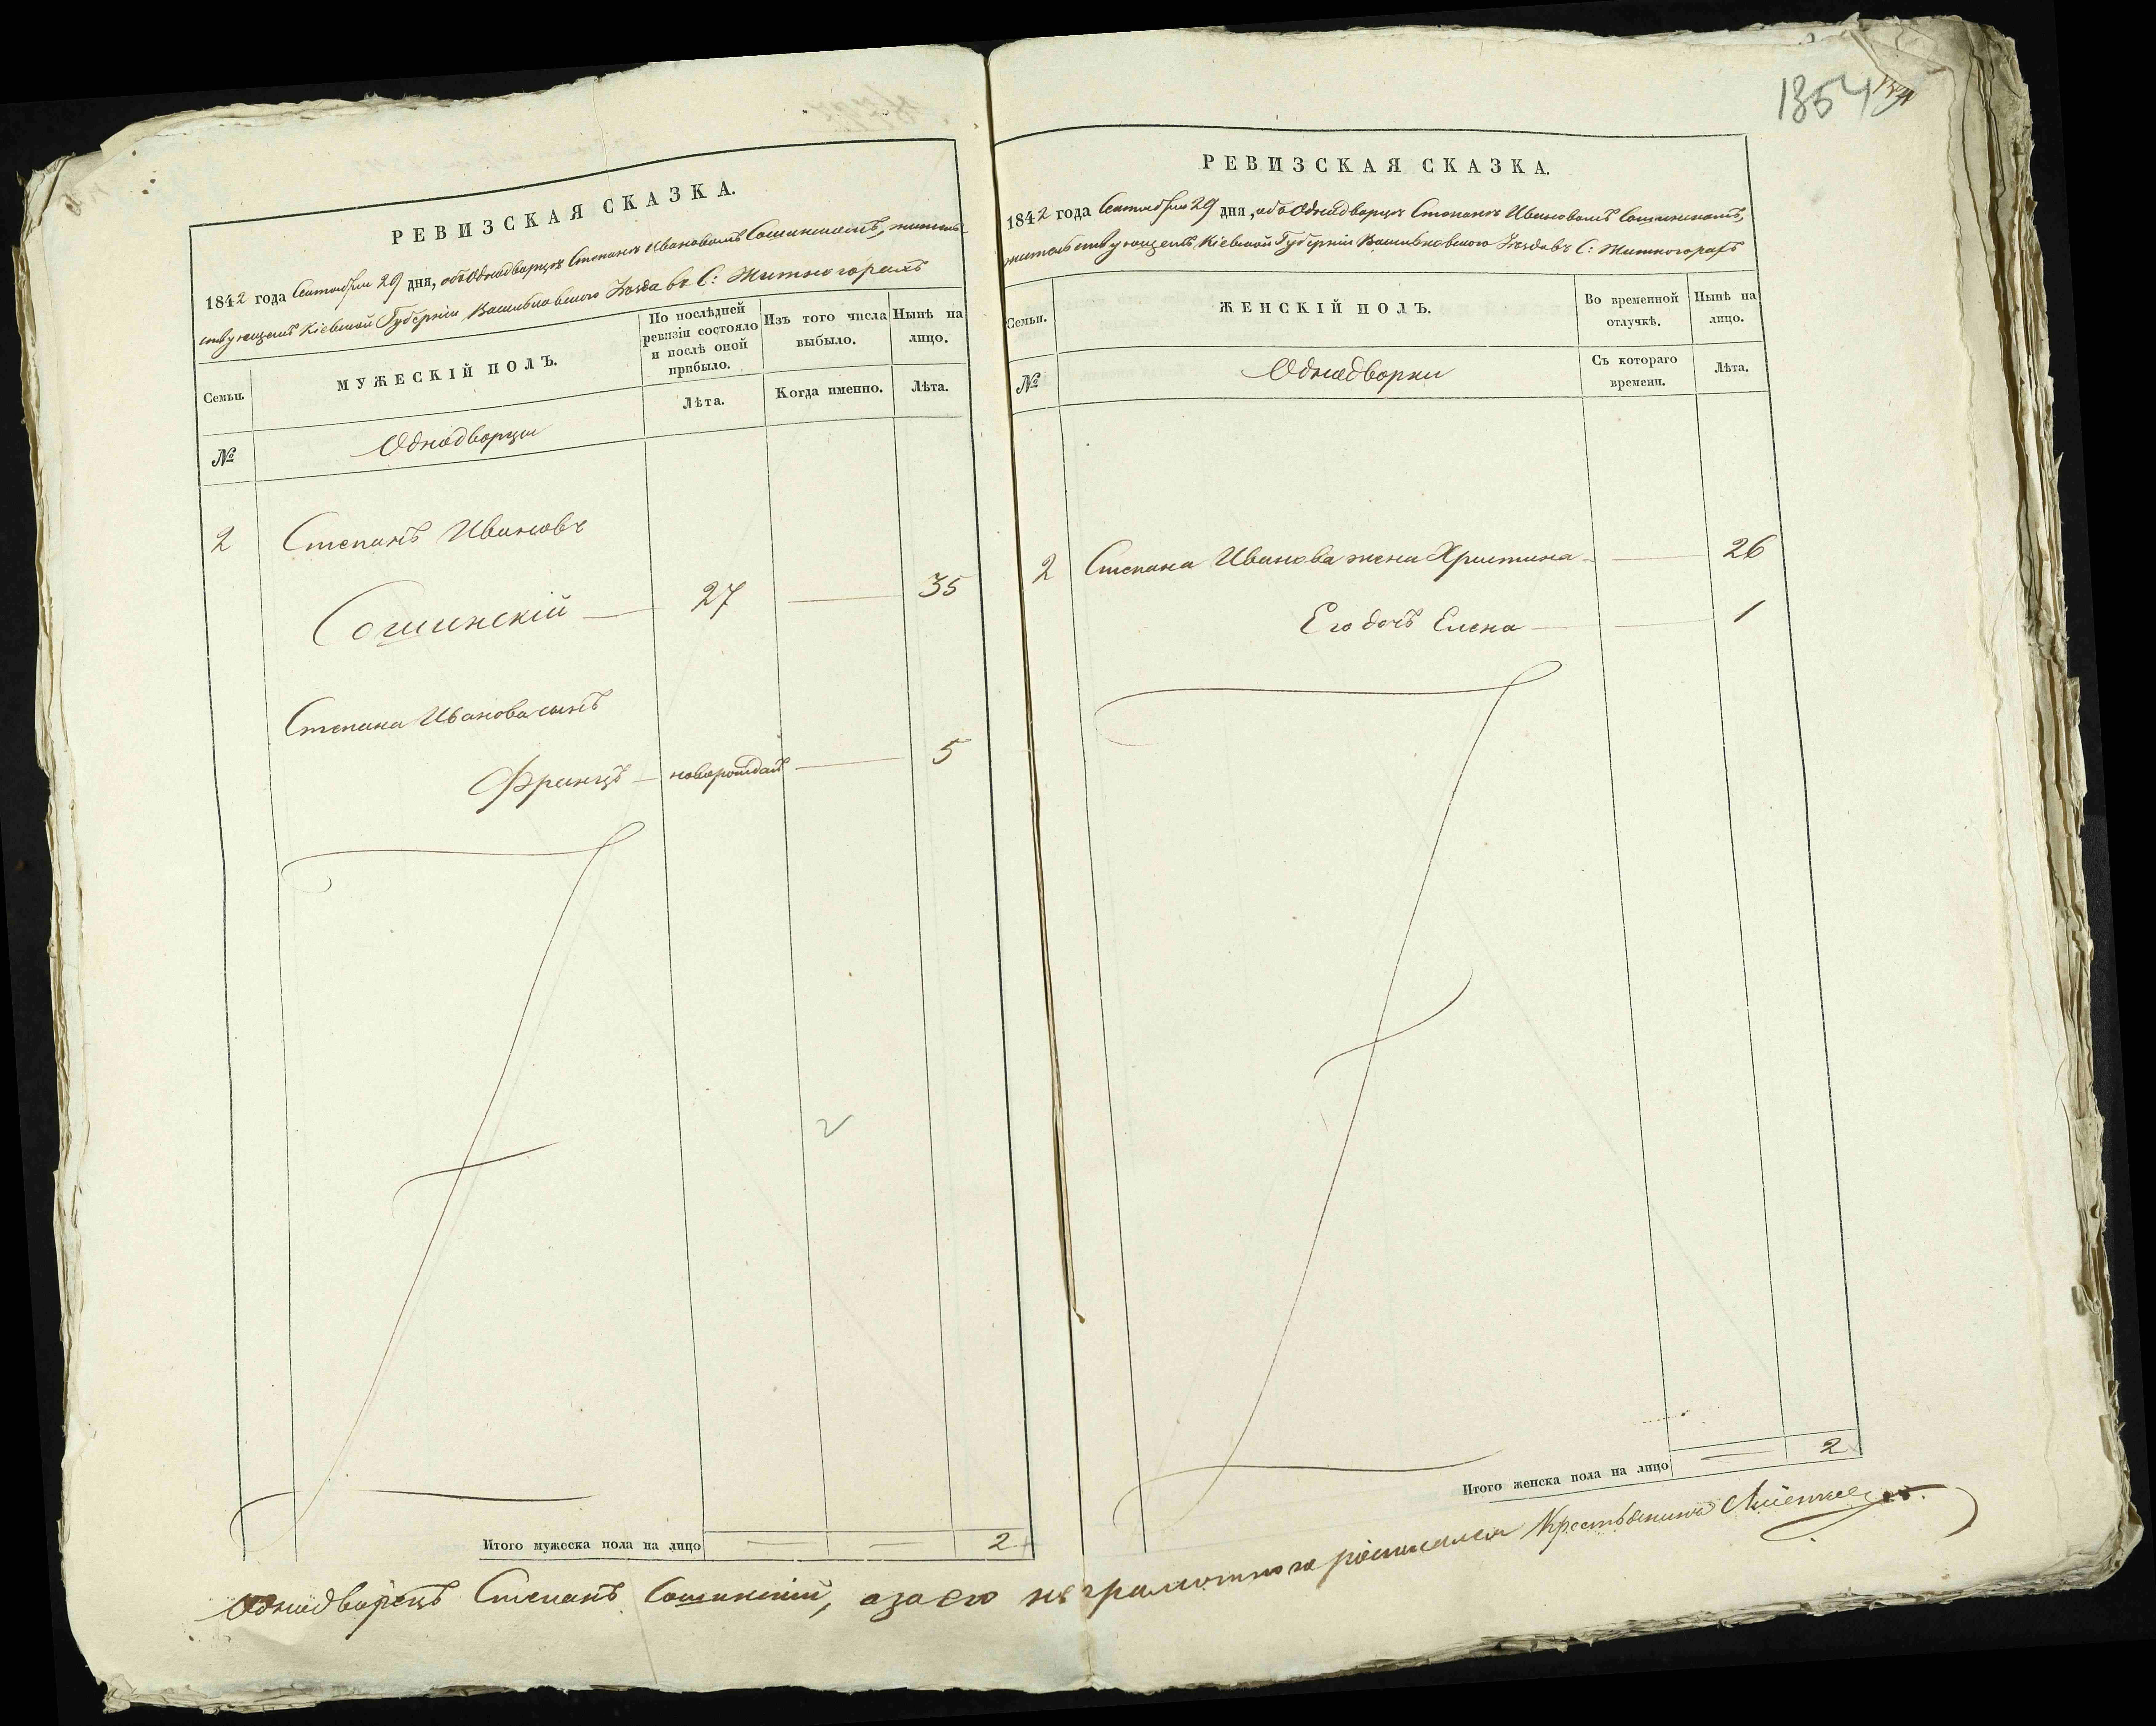 1354
РЕВИЗСКАЯ СКАЗКА.
1842 года Сентября 29 дня, объ Однодворце Степане Ивановомъ Сошинскомъ, житель-
ствующемъ Кіевской Губерніи Васильковскаго Уезда въ С: Житногорахъ
Семьи.
МУЖЕСКІЙ ПОЛЪ.
По послѣдней ревизіи состояло и послѣ оной прибыло.
Изъ того числа выбыло.
Нынѣ на лицо.
Лѣта.
Когда именно.
Лѣта.
№
Однодворцы
2 Степанъ Ивановъ
Сошинскій 27 35
Степана Иванова сынъ
Францъ новорожден 5
2
Итого мужеска пола на лицо 2
РЕВИЗСКАЯ СКАЗКА.
1842 года Сентября 29 дня, объ Однодворце Степане Ивановомъ Сошинскомъ,
жительствующемъ Кіевской Губерніи Васильковского Уезда въ С: Житногорахъ
Семьи.
ЖЕНСКІЙ ПОЛЪ.
Во временной отлучкѣ.
Нынѣ на лицо.
№
Однодворки
Съ котораго времени.
Лѣта.
2 Степана Иванова жена Христина 26
Его дочь Елена 1
Итого женска пола на лицо 2
Однодворецъ Степанъ Сошинский, а за его неграмотного росписался Крестьянинъ